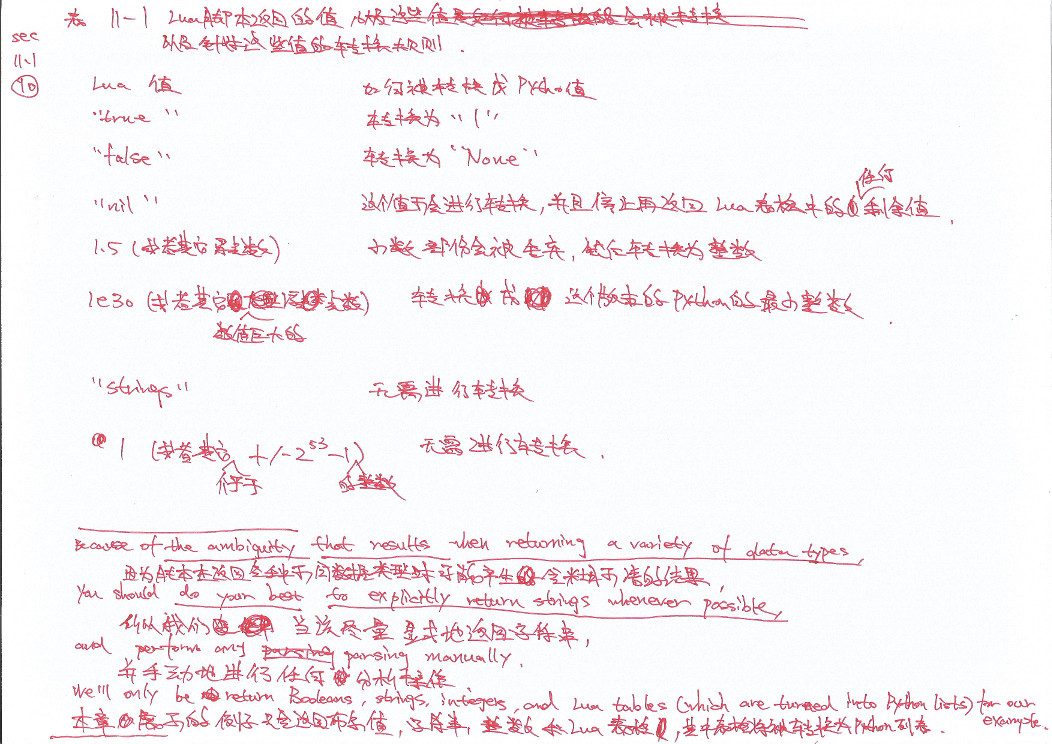 sec
11-1
表 11-1 Lua脚本返回的值
以及针对这些值的转换规则.
Lua 值 如何被转换成 Python值
"true" 转换为 "1"
"false" 转换为 "None"
任何
"nil" 这个值不会进行转换,并且停止再返回 Lua 表格中的剩余值.
1.5 (或者其它浮点数) 小数部份会被丢弃, 转换为整数
1e30 (或者其它 数) 转换成 这个版本的 Python的最小整数
数值巨大的
"strings" 无需进行转换
1 (或者其它 +/-2^53-1) 无需进行转换.
介乎于 的整数
Because of the ambiguity that results when returning a variety of data types,
因为脚本在返回各种不同数据类型时可能产生 令人 的结果,
You should do your best to explicitly return strings whenever possible,
所以我们 当该尽量显式地返回字符串,
and perform any parsing manually.
并手动地进行任何分析操作
We'll only be return Booleans, strings, integers, and Lua tables (which are turned into Python lists) for our
example.
本章展示的例子只会返回布尔值, 字符串, 整数和 Lua 表格, 其中表格将被转换为Python列表.